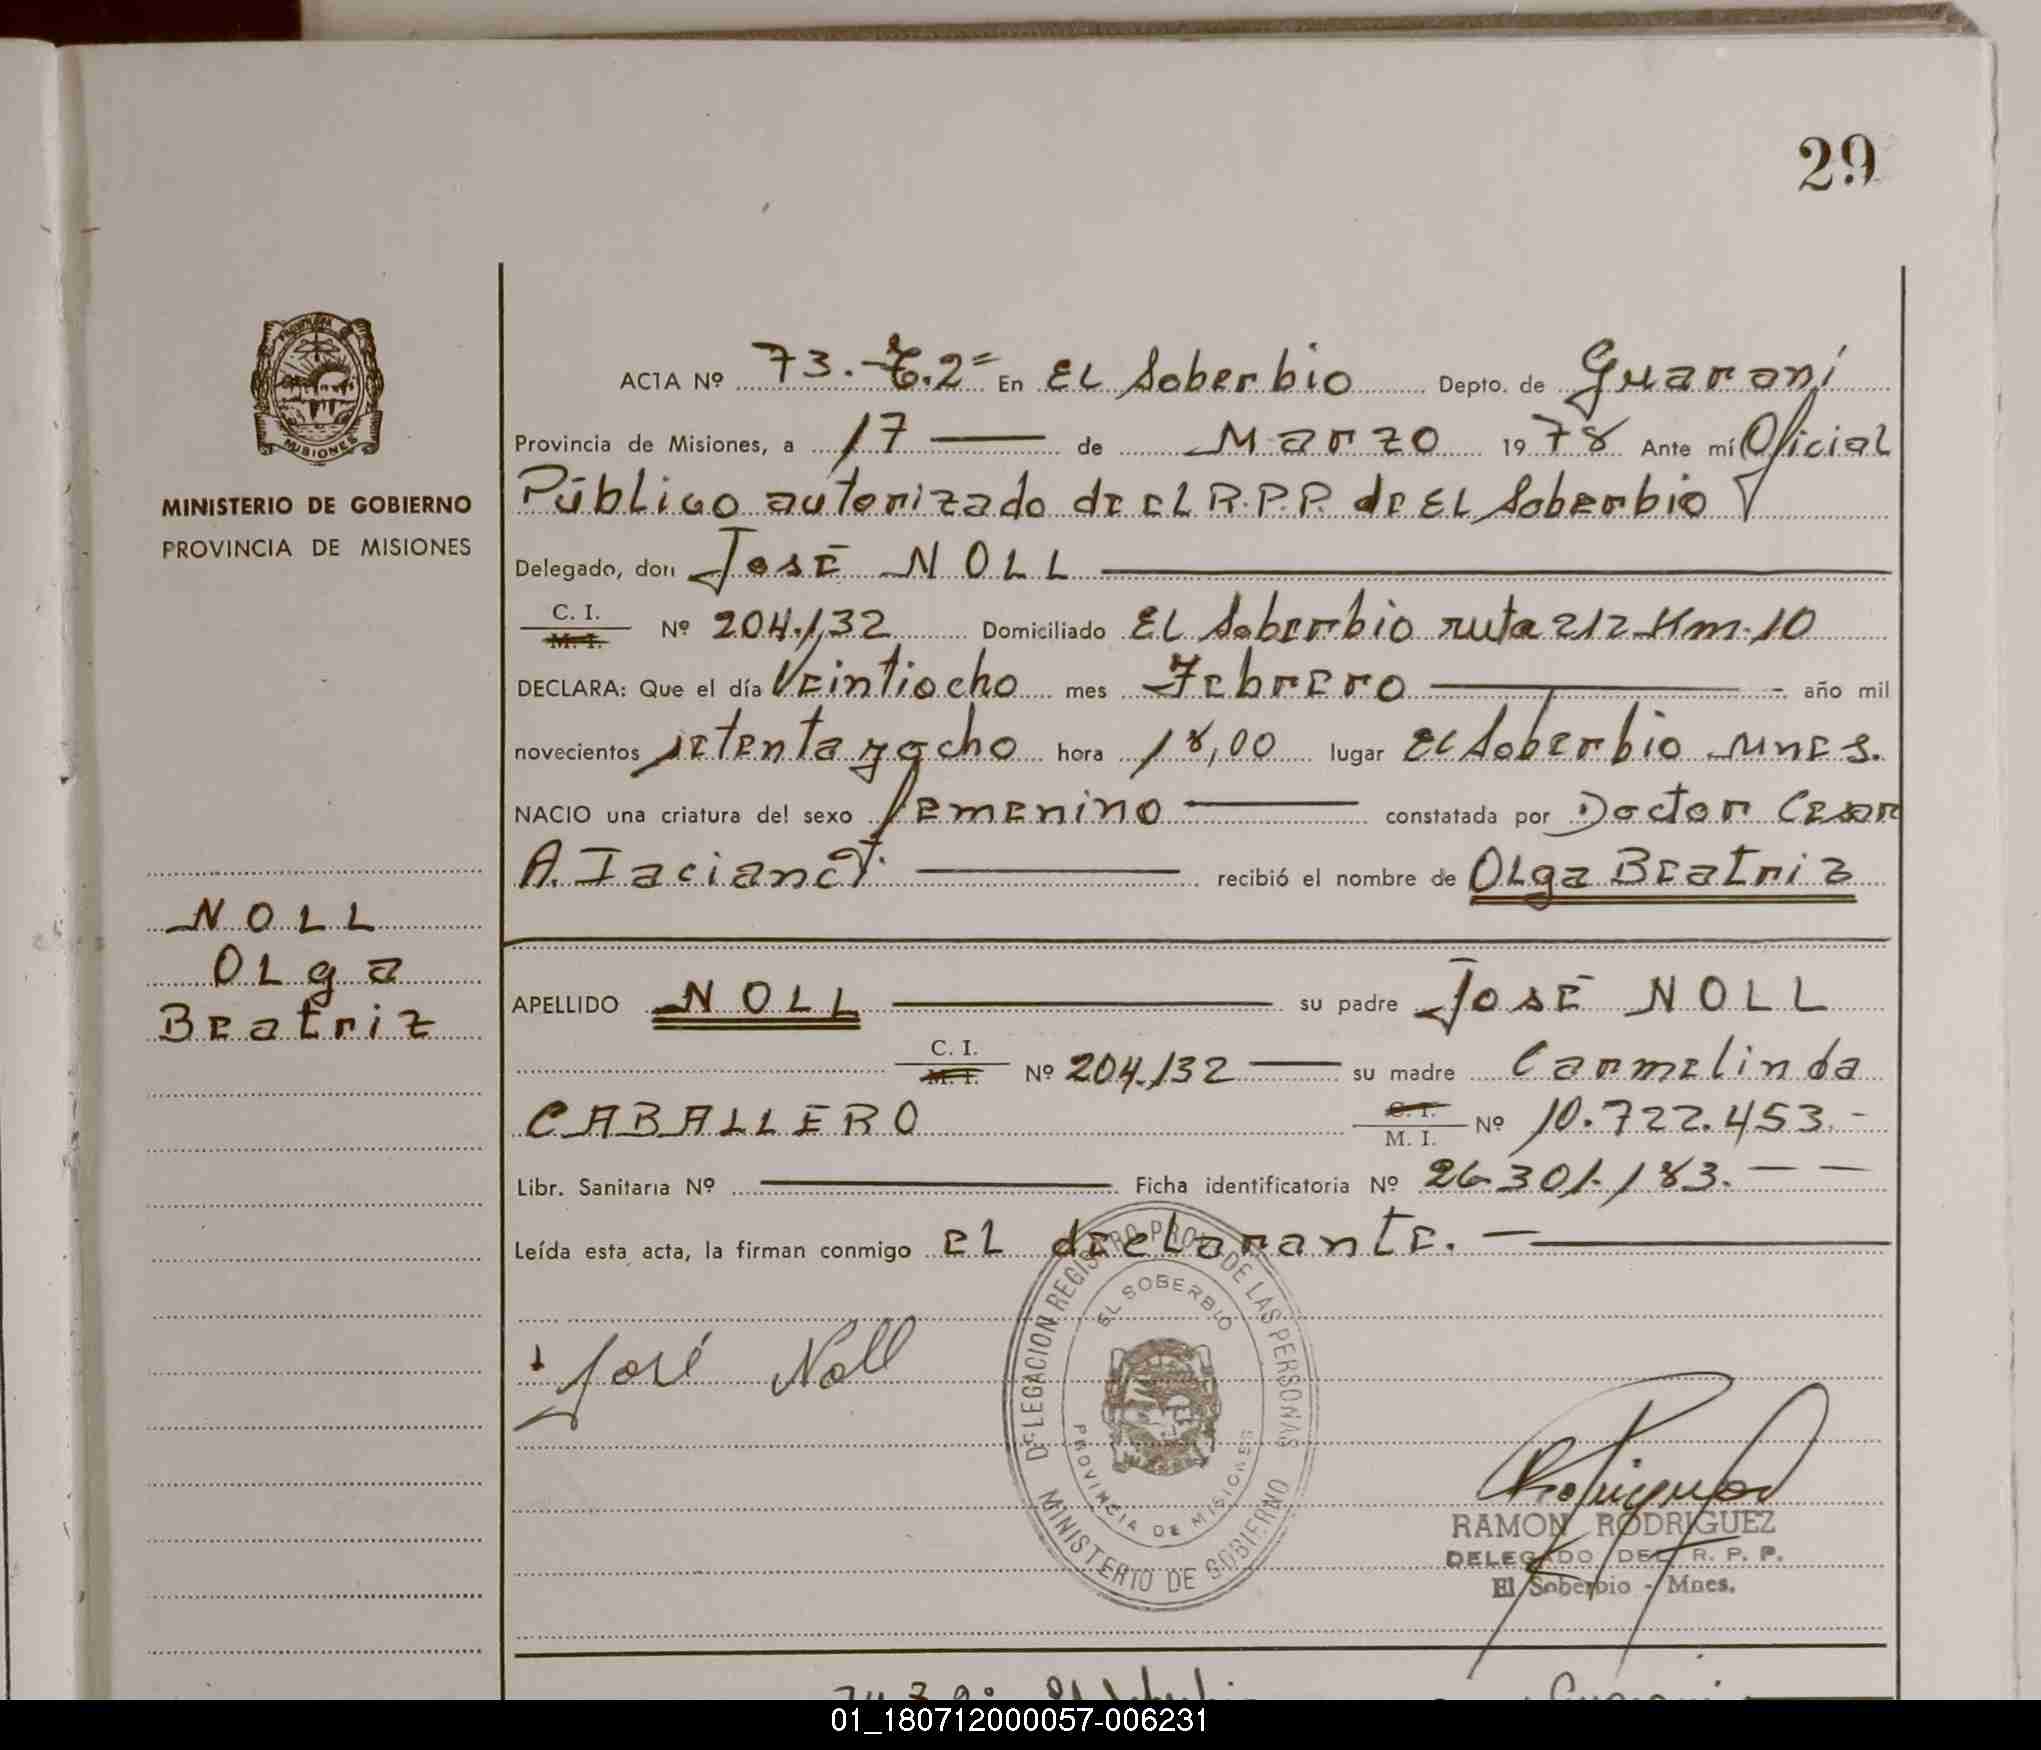 29
ACTA Nº 73.-T.2º En EL Soberbio Depto. de Guaraní
Provincia de Misiones, a 17 de Marzo 1978 Ante mí Oficial
Público autorizado de el R.P.P. de EL Soberbio y
Delegado, don José NOLL
C. I.
M. I. Nº 204.132 Domiciliado EL Soberbio ruta 212 Km. 10
DECLARA: Que el día Veintiocho mes Febrero año mil
novecientos setenta y ocho hora 18,00 lugar El Soberbio Mnes.
NACIO una criatura del sexo femenino constatada por Doctor Cesar
A. recibió el nombre de OLga Beatriz
APELLIDO NOLL su padre José NOLL
C. I.
M. I. Nº 204.132 su madre Carmelinda
CABALLERO C. I.
M. I. Nº 10.722.453.-
Libr. Sanitaria Nº Ficha identificatoria Nº 26.301.183.--
Leída esta acta, la firman conmigo el declarante.-
José Noll
MISIONES
MINISTERIO DE GOBIERNO
PROVINCIA DE MISIONES
NOLL
OLga
Beatriz
DELEGACION REGISTRO PROV. DE LAS PERSONAS
EL SOBERBIO
PROVINCIA DE MISIONES
MINISTERIO DE GOBIERNO
Rodriguez
RAMON RODRIGUEZ
DELEGADO DEL R. P. P.
El Soberbio - Mnes.
01_180712000057-006231